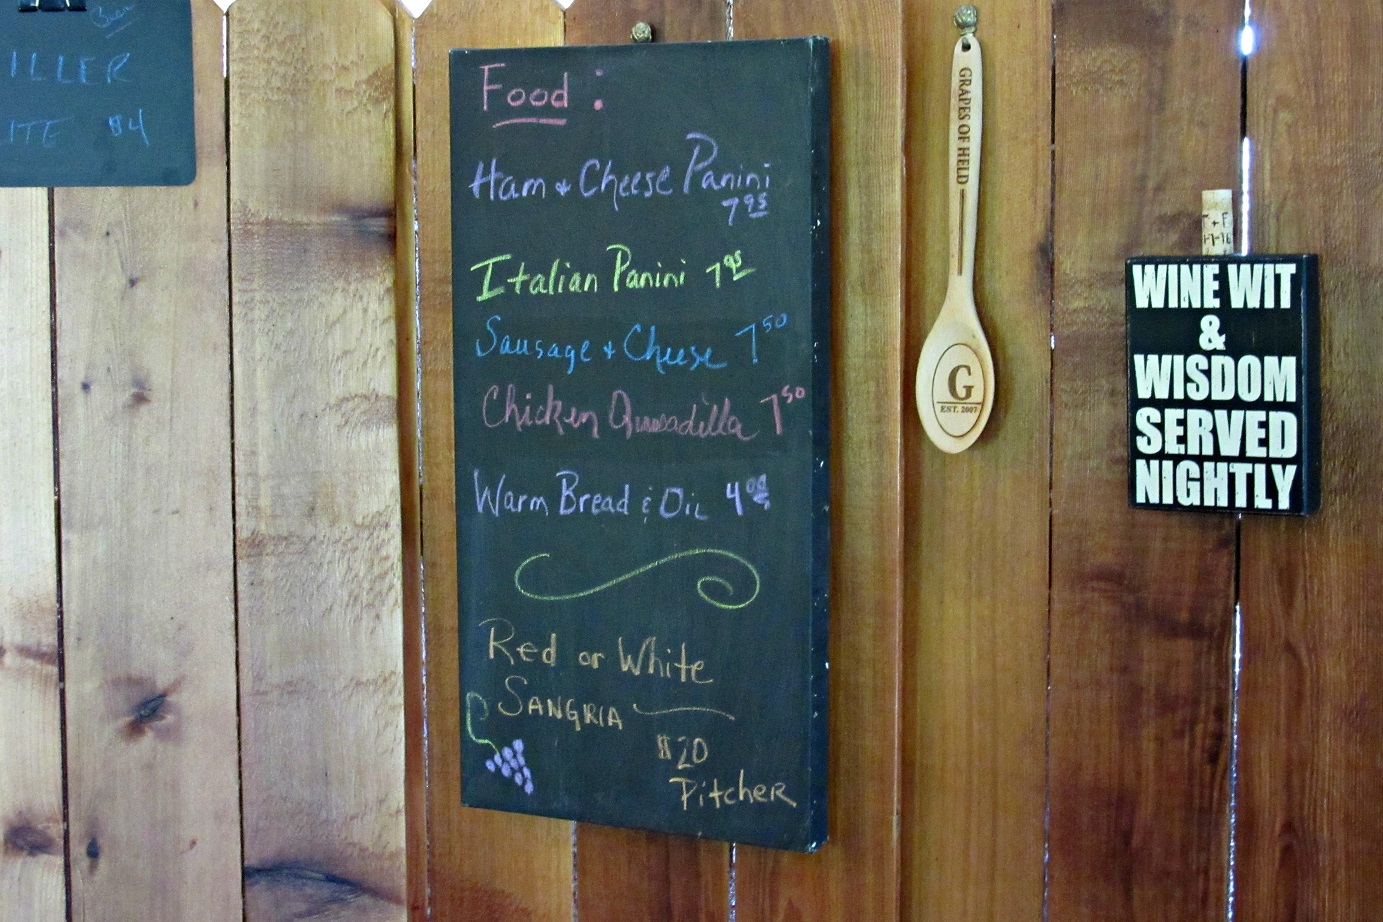 Beer
ILLER
ITE $4
Food:
Ham & Cheese Panini
7.95
Italian Panini 7.95
Sausage & Cheese 7.50
Chicken Quesadilla 7.50
Warm Bread & Oil 4.00
Red or White
SANGRIA
$20
Pitcher
GRAPES OF HELD
G
EST. 2007
WINE WIT
&
WISDOM
SERVED
NIGHTLY